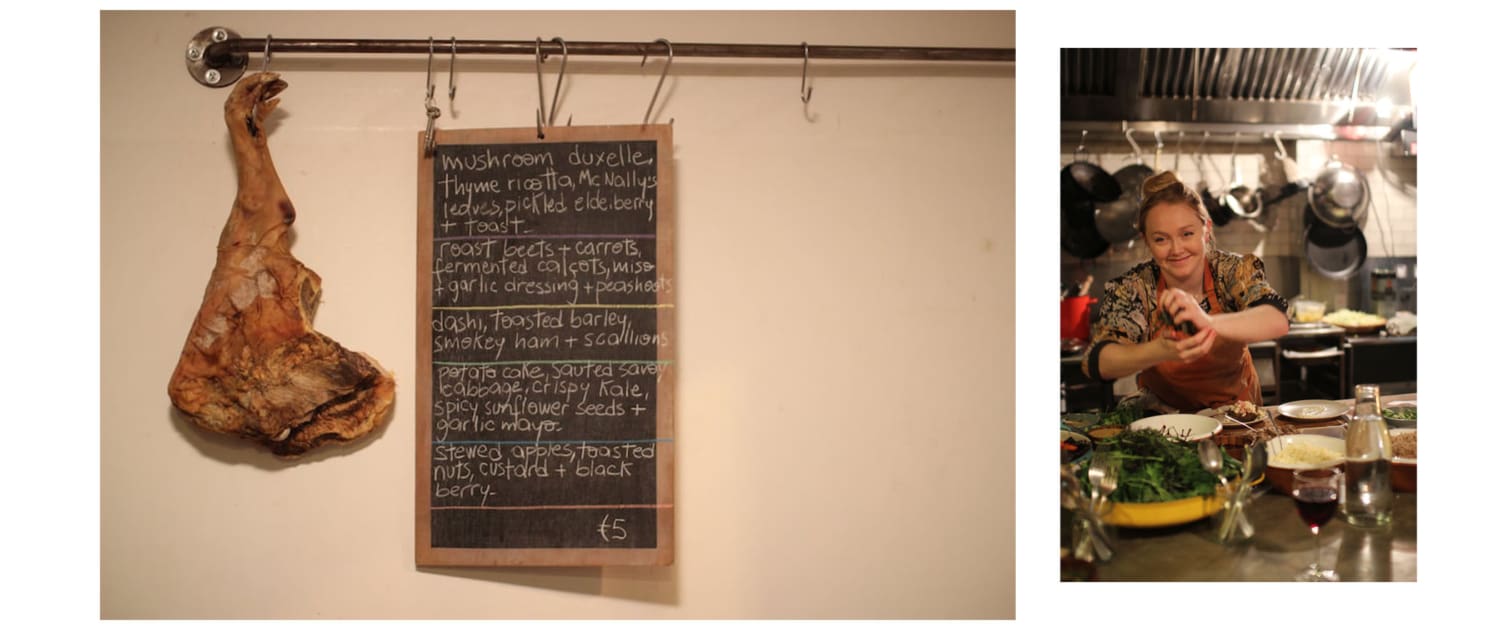 mushroom duxelle,
thyme ricotta, McNally's
leaves, pickled elderberry
+ toast-
roast beets + carrots,
fermented calçots, miso
+ garlic dressing + peashoots
dashi, toasted barley,
smokey ham + scallions
potato cake, sauted savoy
cabbage, crispy kale,
spicy sunflower seeds +
garlic mayo-
stewed apples, toasted
nuts, custard + black
berry-
€5